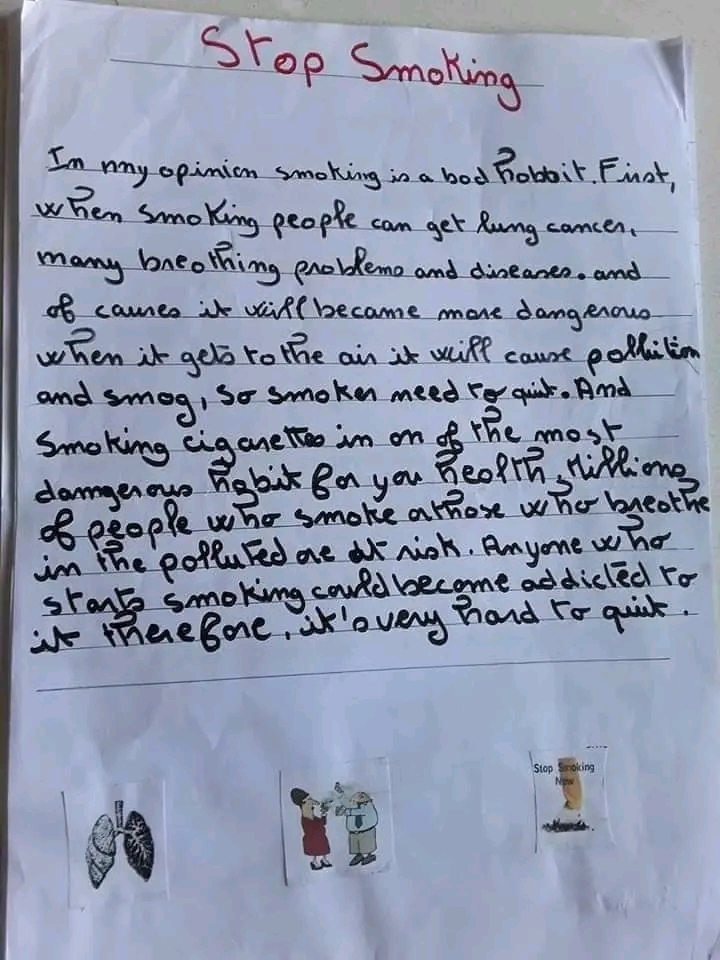 Stop Smoking
In my opinion smoking is a bad hobbit. First,
when smoking people can get lung cancer,
many breathing problems and diseases. and
of causes it will became more dangerous
when it gets to the air it will cause pollution
and smog, so smoker need to quit. And
Smoking cigarettes in on of the most
damgerous habit for you health, Millions
of people who smoke athose who breathe
in the polluted are at risk. Anyone who
starts smoking could become addicted to
it therefore, it's very hard to quit.
Stop Smoking
Now